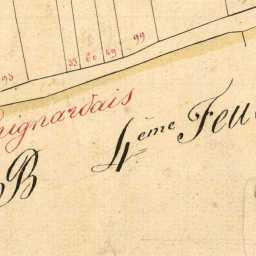 93
33 60 49 99
ignardais
B 4ème Feu